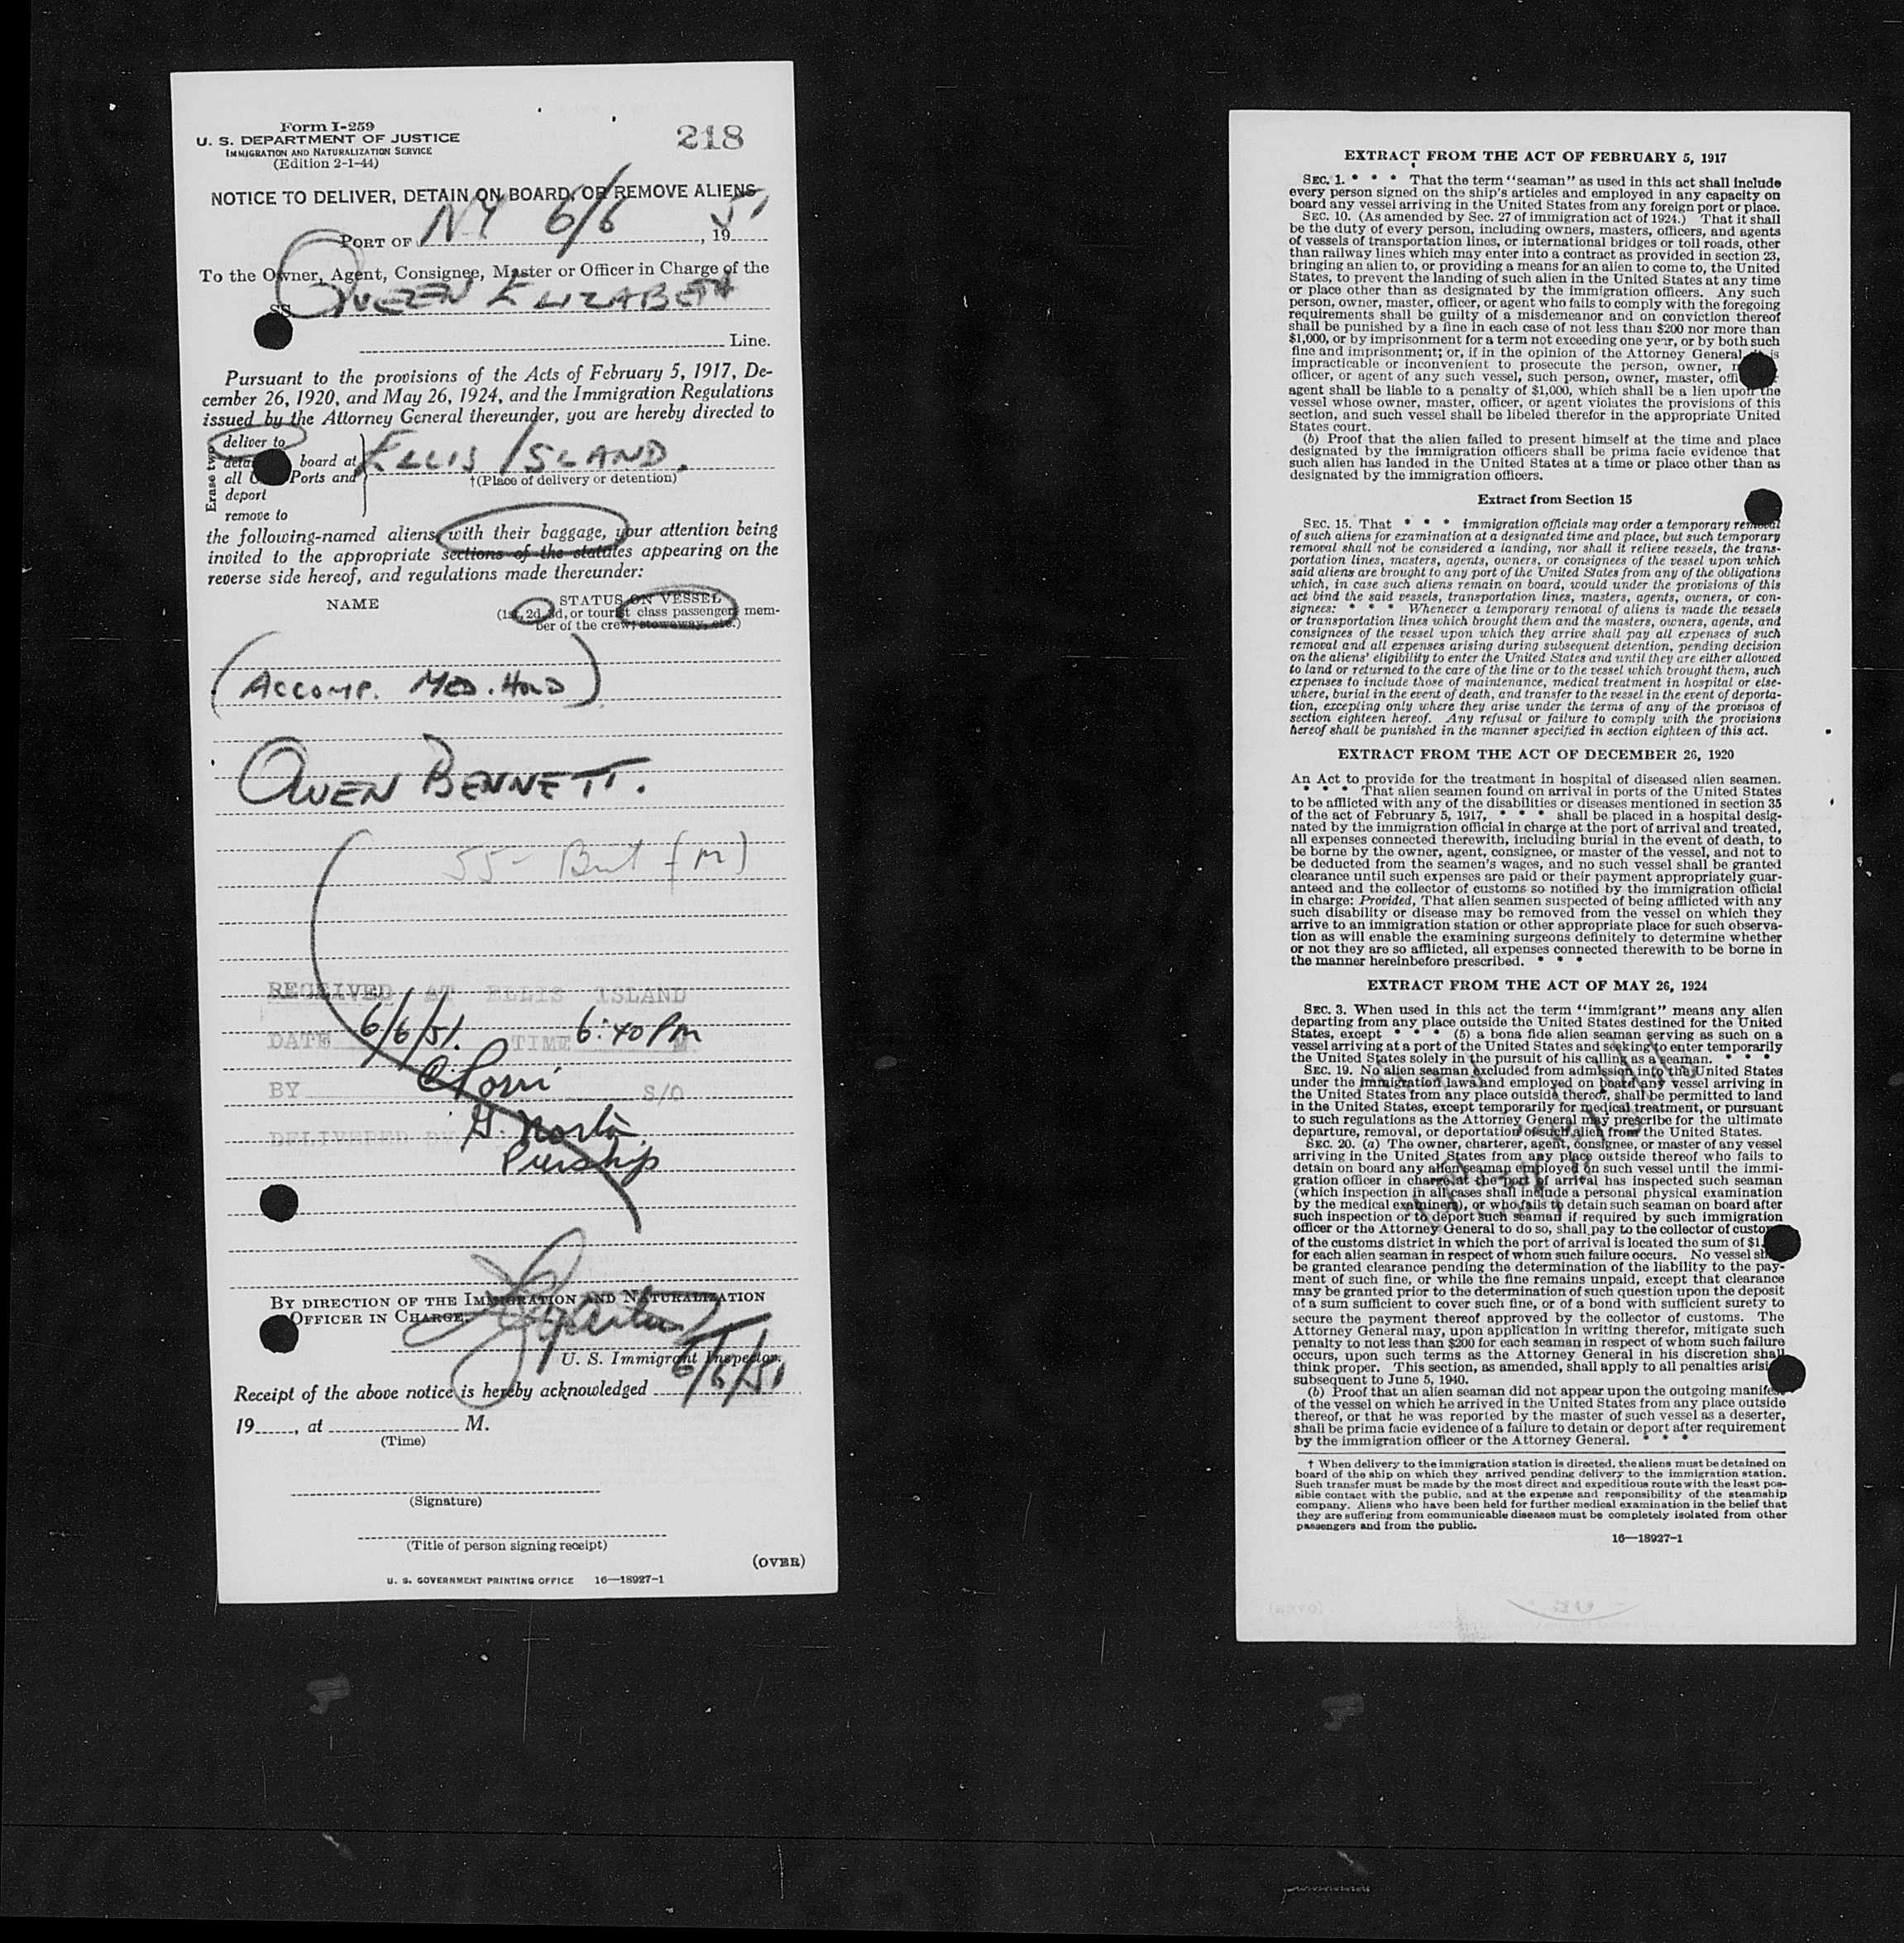 Form I-259
U. S. DEPARTMENT OF JUSTICE
IMMIGRATION AND NATURALIZATION SERVICE
(Edition 2-1-44)
218
NOTICE TO DELIVER, DETAIN ON BOARD, OR REMOVE ALIENS
PORT OF NY 6/6, 1951
To the Owner, Agent, Consignee, Master or Officer in Charge of the
SS QUEEN ELIZABETH
Line.
Pursuant to the provisions of the Acts of February 5, 1917, De-
cember 26, 1920, and May 26, 1924, and the Immigration Regulations
issued by the Attorney General thereunder, you are hereby directed to
Erase two
deliver to
board at
all Ports and
deport
remove to
ELLIS ISLAND.
†(Place of delivery or detention)
the following-named aliens with their baggage, your attention being
invited to the appropriate sections of the statutes appearing on the
reverse side hereof, and regulations made thereunder:
NAME
STATUS ON VESSEL
(1st, 2d, 3d, or tourist class passenger, mem-
ber of the crew, stowaway, etc.)
(ACCOMP. MED. HOLD)
OWEN BENNETT.
55- Brit (m)
RECEIVED AT ELLIS ISLAND
DATE 6/6/51. TIME 6:40 PM
BY S/O
DELIVERED BY
BY DIRECTION OF THE IMMIGRATION AND NATURALIZATION
OFFICER IN CHARGE.
U. S. Immigrant Inspector.
Receipt of the above notice is hereby acknowledged 6/6/51
19......, at M.
(Time)
(Signature)
(Title of person signing receipt)
(OVER)
U. S. GOVERNMENT PRINTING OFFICE 16—18927-1
EXTRACT FROM THE ACT OF FEBRUARY 5, 1917
SEC. 1. * * * That the term "seaman" as used in this act shall include
every person signed on the ship's articles and employed in any capacity on
board any vessel arriving in the United States from any foreign port or place.
SEC. 10. (As amended by Sec. 27 of immigration act of 1924.) That it shall
be the duty of every person, including owners, masters, officers, and agents
of vessels of transportation lines, or international bridges or toll roads, other
than railway lines which may enter into a contract as provided in section 23,
bringing an alien to, or providing a means for an alien to come to, the United
States, to prevent the landing of such alien in the United States at any time
or place other than as designated by the immigration officers. Any such
person, owner, master, officer, or agent who fails to comply with the foregoing
requirements shall be guilty of a misdemeanor and on conviction thereof
shall be punished by a fine in each case of not less than $200 nor more than
$1,000, or by imprisonment for a term not exceeding one year, or by both such
fine and imprisonment; or, if in the opinion of the Attorney General, it is
impracticable or inconvenient to prosecute the person, owner,
officer, or agent of any such vessel, such person, owner, master,
agent shall be liable to a penalty of $1,000, which shall be a lien upon the
vessel whose owner, master, officer, or agent violates the provisions of this
section, and such vessel shall be libeled therefor in the appropriate United
States court.
(b) Proof that the alien failed to present himself at the time and place
designated by the immigration officers shall be prima facie evidence that
such alien has landed in the United States at a time or place other than as
designated by the immigration officers.
Extract from Section 15
SEC. 15. That * * * immigration officials may order a temporary removal
of such aliens for examination at a designated time and place, but such temporary
removal shall not be considered a landing, nor shall it relieve vessels, the trans-
portation lines, masters, agents, owners, or consignees of the vessel upon which
said aliens are brought to any port of the United States from any of the obligations
which, in case such aliens remain on board, would under the provisions of this
act bind the said vessels, transportation lines, masters, agents, owners, or con-
signees: * * * Whenever a temporary removal of aliens is made the vessels
or transportation lines which brought them and the masters, owners, agents, and
consignees of the vessel upon which they arrive shall pay all expenses of such
removal and all expenses arising during subsequent detention, pending decision
on the aliens' eligibility to enter the United States and until they are either allowed
to land or returned to the care of the line or to the vessel which brought them, such
expenses to include those of maintenance, medical treatment in hospital or else-
where, burial in the event of death, and transfer to the vessel in the event of deporta-
tion, excepting only where they arise under the terms of any of the provisos of
section eighteen hereof. Any refusal or failure to comply with the provisions
hereof shall be punished in the manner specified in section eighteen of this act.
EXTRACT FROM THE ACT OF DECEMBER 26, 1920
An Act to provide for the treatment in hospital of diseased alien seamen.
* * * That alien seamen found on arrival in ports of the United States
to be afflicted with any of the disabilities or diseases mentioned in section 35
of the act of February 5, 1917, * * * shall be placed in a hospital desig-
nated by the immigration official in charge at the port of arrival and treated,
all expenses connected therewith, including burial in the event of death, to
be borne by the owner, agent, consignee, or master of the vessel, and not to
be deducted from the seamen's wages, and no such vessel shall be granted
clearance until such expenses are paid or their payment appropriately guar-
anteed and the collector of customs so notified by the immigration official
in charge: Provided, That alien seamen suspected of being afflicted with any
such disability or disease may be removed from the vessel on which they
arrive to an immigration station or other appropriate place for such observa-
tion as will enable the examining surgeons definitely to determine whether
or not they are so afflicted, all expenses connected therewith to be borne in
the manner hereinbefore prescribed. * * *
EXTRACT FROM THE ACT OF MAY 26, 1924
SEC. 3. When used in this act the term "immigrant" means any alien
departing from any place outside the United States destined for the United
States, except * * * (5) a bona fide alien seaman serving as such on a
vessel arriving at a port of the United States and seeking to enter temporarily
the United States solely in the pursuit of his calling as a seaman. * * *
SEC. 19. No alien seaman excluded from admission into the United States
under the immigration laws and employed on board any vessel arriving in
the United States from any place outside thereof, shall be permitted to land
in the United States, except temporarily for medical treatment, or pursuant
to such regulations as the Attorney General may prescribe for the ultimate
departure, removal, or deportation of such alien from the United States.
SEC. 20. (a) The owner, charterer, agent, consignee, or master of any vessel
arriving in the United States from any place outside thereof who fails to
detain on board any alien seaman employed on such vessel until the immi-
gration officer in charge at the port of arrival has inspected such seaman
(which inspection in all cases shall include a personal physical examination
by the medical examiners), or who fails to detain such seaman on board after
such inspection or to deport such seaman if required by such immigration
officer or the Attorney General to do so, shall pay to the collector of customs
of the customs district in which the port of arrival is located the sum of $1,
for each alien seaman in respect of whom such failure occurs. No vessel shall
be granted clearance pending the determination of the liability to the pay-
ment of such fine, or while the fine remains unpaid, except that clearance
may be granted prior to the determination of such question upon the deposit
of a sum sufficient to cover such fine, or of a bond with sufficient surety to
secure the payment thereof approved by the collector of customs. The
Attorney General may, upon application in writing therefor, mitigate such
penalty to not less than $200 for each seaman in respect of whom such failure
occurs, upon such terms as the Attorney General in his discretion shall
think proper. This section, as amended, shall apply to all penalties arising
subsequent to June 5, 1940.
(b) Proof that an alien seaman did not appear upon the outgoing manifest
of the vessel on which he arrived in the United States from any place outside
thereof, or that he was reported by the master of such vessel as a deserter,
shall be prima facie evidence of a failure to detain or deport after requirement
by the immigration officer or the Attorney General. * * *
† When delivery to the immigration station is directed, the aliens must be detained on
board of the ship on which they arrived pending delivery to the immigration station.
Such transfer must be made by the most direct and expeditious route with the least pos-
sible contact with the public, and at the expense and responsibility of the steamship
company. Aliens who have been held for further medical examination in the belief that
they are suffering from communicable diseases must be completely isolated from other
passengers and from the public.
16—18927-1